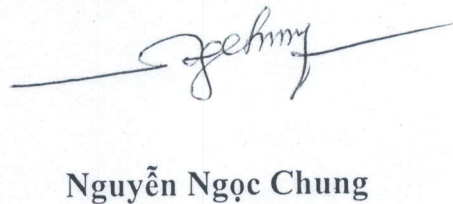 Nguyễn Ngọc Chung